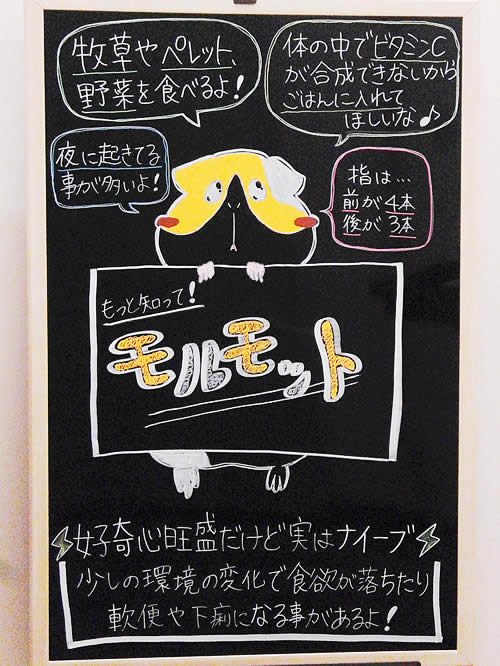 牧草やペレット、
野菜を食べるよ！
体の中でビタミンC
が合成できないから
ごはんに入れて
ほしいな♪
夜に起きてる
事が多いよ！
指は…
前が4本
後が3本
もっと知って！
モルモット
好奇心旺盛だけど実はナイーブ
少しの環境の変化で食欲が落ちたり
軟便や下痢になる事があるよ！